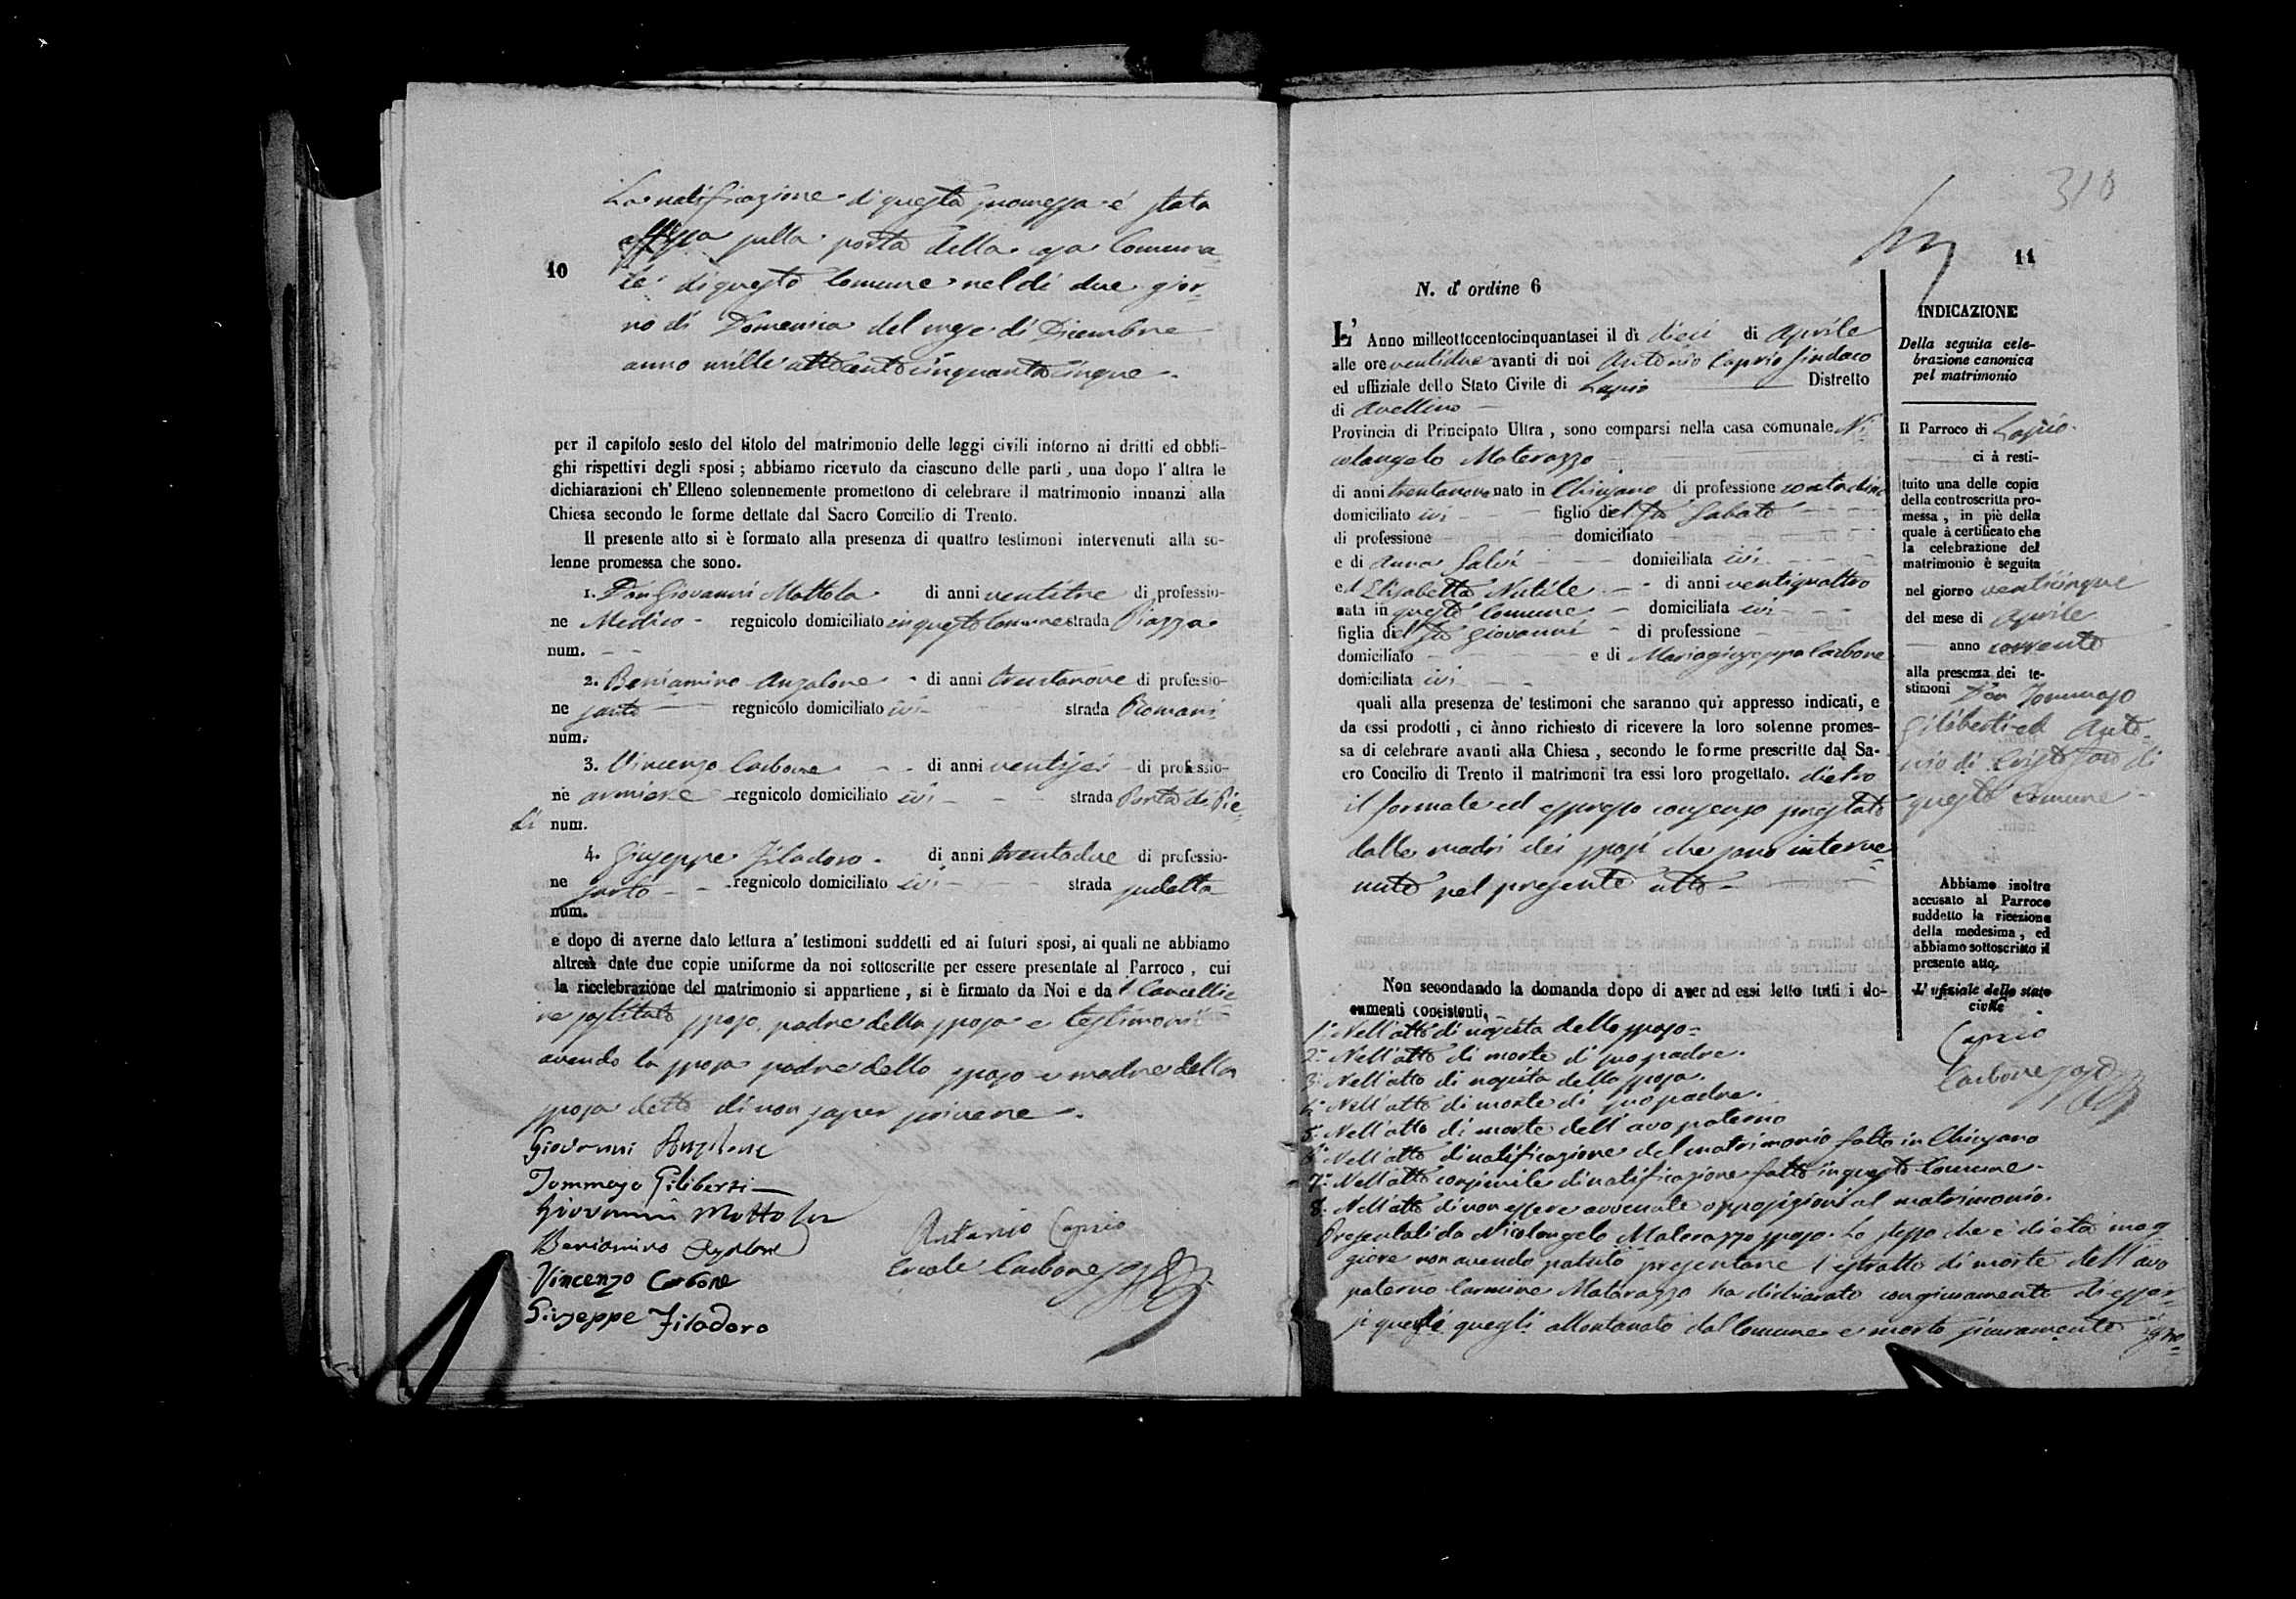 La notificazione di questa promessa è stata
affissa sulla porta della casa Comuna
le di questo Comune nel dì due gior-
no di Domenica del mese di Dicembre
anno mille ottocentocinquantacinque -
10
per il capitolo sesto del titolo del matrimonio delle leggi civili intorno ai dritti ed obbli-
ghi rispettivi degli sposi ; abbiamo ricevuto da ciascuno delle parti , una dopo l'altra le
dichiarazioni ch'Elleno solennemente promettono di celebrare il matrimonio innanzi alla
Chiesa secondo le forme dettate dal Sacro Concilio di Trento.
Il presente atto si è formato alla presenza di quattro testimoni intervenuti alla so-
lenne promessa che sono.
1. Don Giovanni Mottola di anni ventitre di professio-
ne Medico - regnicolo domiciliato in questo Comune strada Piazza
num. - -
2. Beniamino Anzalone - di anni trentanove di professio-
ne sarto regnicolo domiciliato ivi strada Romani
num.
3. Vincenzo Carbone - - di anni ventisei - di professio-
ne armiere regnicolo domiciliato ivi - - - strada Porta di Pie-
di num.
4. Giuseppe Filadoro - di anni trentadue di professio-
ne sarto - - regnicolo domiciliato ivi - - strada
num.
e dopo di averne dato lettura a' testimoni suddetti ed ai futuri sposi, ai quali ne abbiamo
altresì date due copie uniforme da noi sottoscritte per essere presentate al Parroco , cui
la ricelebrazione del matrimonio si appartiene , si è firmato da Noi e da l Cancellie
re sostituto sposo, padre della sposa e testimonii
avendo la sposa padre dello sposo e madre della
sposa detto di non saper scrivere -
Giovanni Anzalone
Tommaso Giliberti
Giovanni Mottola
Beniamino Anzalone
Vincenzo Carbone
Giuseppe Filadoro
Antonio Caprio
Ercole Carbone
310
11
N. d' ordine 6
L' Anno millottocentocinquantasei il dì dieci di Aprile
alle ore ventidue avanti di noi Antonio Caprio Sindaco
ed uffiziale dello Stato Civile di Lapio Distretto
di Avellino -
Provincia di Principato Ultra , sono comparsi nella casa comunale Ni
colangelo Materazzo
di anni trentanove nato in Chiusano di professione contadino
domiciliato ivi - - figlio del fu Sabato - - -
di professione domiciliato
e di Anna Salvi domiciliata ivi - - -
ed Elisabetta Nutile - - di anni ventiquattro
nata in questo Comune - domiciliata ivi - - -
figlia del fu Giovanni - di professione -
domiciliato - - - - - e di Mariagiuseppa Carbone
domiciliata ivi - -
quali alla presenza de' testimoni che saranno qui appresso indicati, e
da essi prodotti , ci ànno richiesto di ricevere la loro solenne promes-
sa di celebrare avanti alla Chiesa , secondo le forme prescritte dal Sa-
cro Concilio di Trento il matrimoni tra essi loro progettato. dietro
il formale ed espresso consenso prestato
dalle madri dei sposi che sono interve-
nute nel presente atto -
Non secondando la domanda dopo di aver ad essi letto tutti i do-
cumenti consistenti,
1.° Nell'atto di nascita dello sposo -
2.° Nell'atto di morte di suo padre.
3.° Nell'atto di nascita della sposa.
4.° Nell'atto di morte di suo padre.
5.° Nell'atto di morte dell'avo paterno
6.° Nell'atto di notificazione del matrimonio fatto in Chiusano
7.° Nell'atto consimile di notificazione fatto in questo Comune -
8. Nell'atto di non essere avvenute opposizioni al matrimonio.
Presentati da Nicolangelo Materazzo sposo. Lo stesso che è di età mag
giore non avendo potuto presentare l'estratto di morte dell'avo
paterno Carmine Matarazzo ha dichiarato con giuramento di esser-
si quegli allontanato dal Comune e morto sicuramente igno-
INDICAZIONE
Della seguita cele-
brazione canonica
pel matrimonio
Il Parroco di Lapio -
ci à resti-
tuito una delle copie
della controscritta pro-
messa , in piè della
quale à certificato che
la celebrazione del
matrimonio è seguita
nel giorno venticinque
del mese di Aprile
anno corrente
alla presenza dei te-
stimoni Don Tommaso
Giliberti ed Anto-
nio di Cristofaro di
questo Comune -
Abbiamo inoltre
accusato al Parroco
suddetto la ricezione
della medesima , ed
abbiamo sottoscritto il
presente atto.
L' ufiziale dello stato
civile
Caprio
Carbone